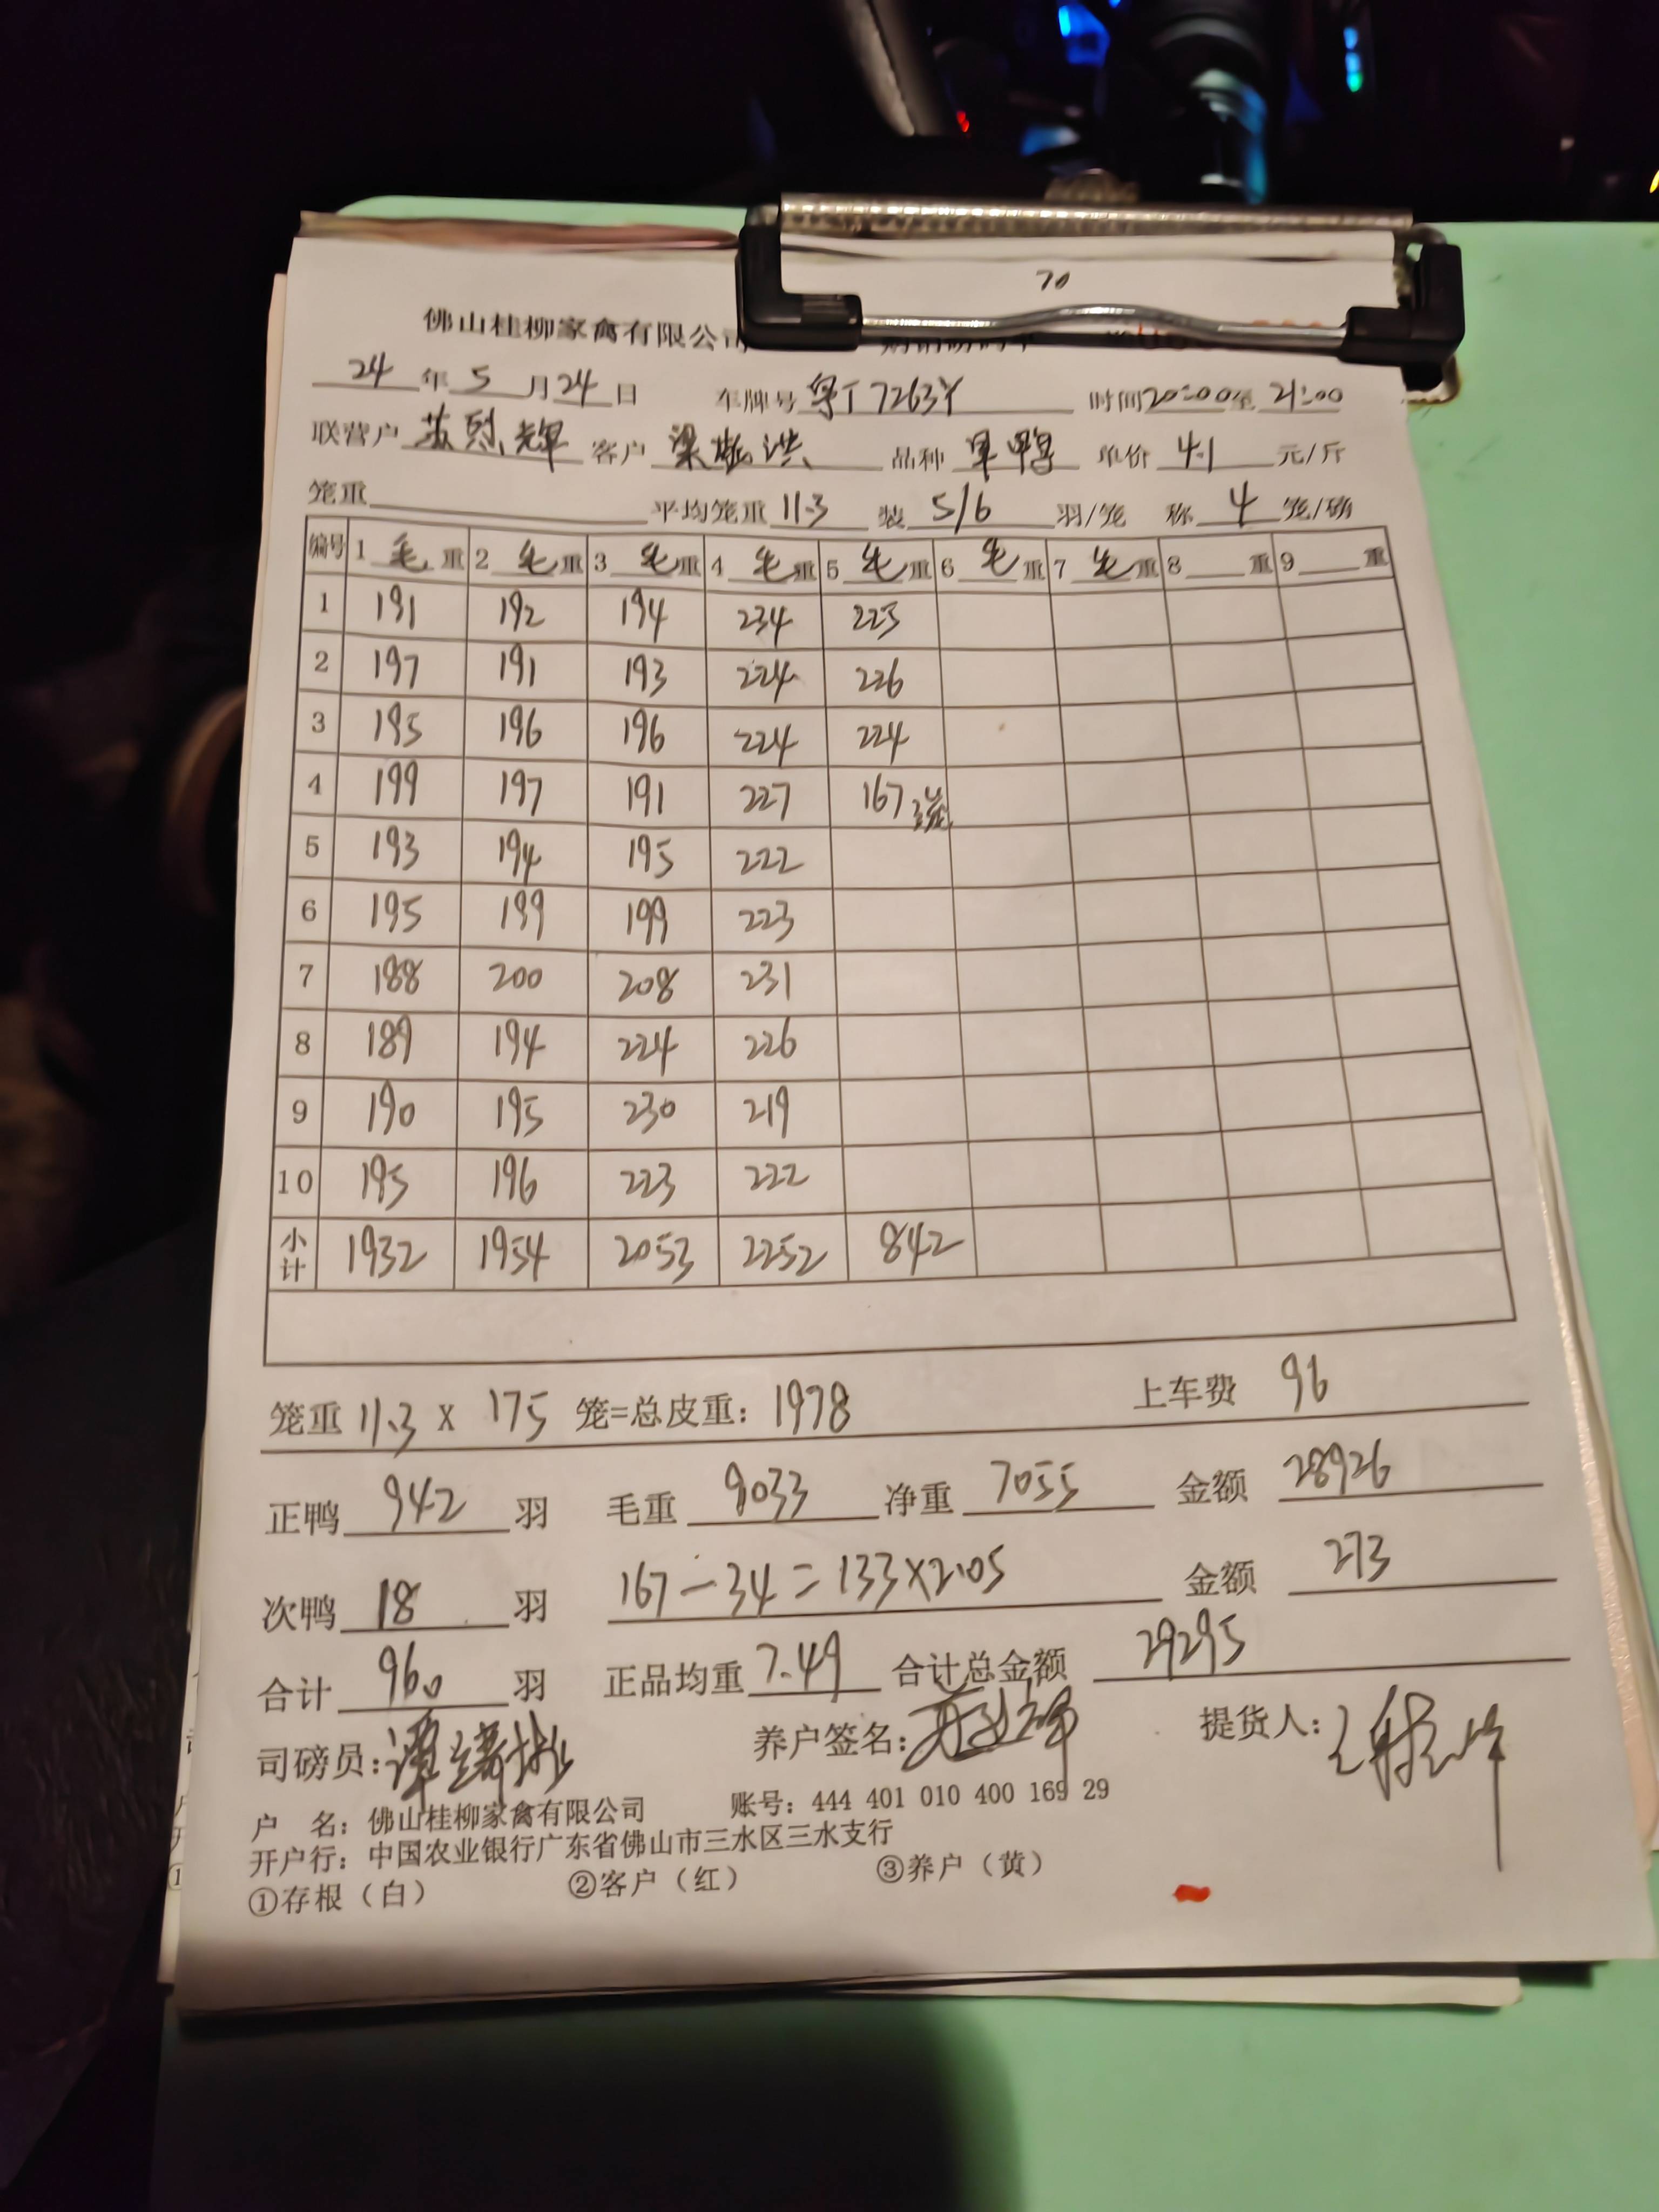 70
佛山桂柳家禽有限公司
24 年 5 月 24 日 车牌号 粤T7263Y 时间 20:00 至 21:00
联营户 苏烈辉 客户 梁 洪 品种 旱鸭 单价 4.1 元/斤
笼重 平均笼重 11.3 装 5/6 羽/笼 称 4 笼/磅
编号 1 毛 重 2 毛 重 3 毛 重 4 毛 重 5 毛 重 6 毛 重 7 毛 重 8 重 9 重
1 191 192 194 234 225
2 197 191 193 224 226
3 195 196 196 224 224
4 199 197 191 227 167 3笼
5 193 194 195 222
6 195 199 199 223
7 188 200 208 231
8 189 194 224 226
9 190 195 230 219
10 195 196 223 222
小计 1932 1954 2053 2252 842
笼重 11.3 X 175 笼=总皮重: 1978 上车费 96
正鸭 942 羽 毛重 9033 净重 7055 金额 28926
次鸭 18 羽 167-34=133×2.05 金额 273
合计 960 羽 正品均重 7.49 合计总金额 29295
司磅员: 谭 养户签名: 提货人:
户 名: 佛山桂柳家禽有限公司 账号: 444 401 010 400 169 29
开户行: 中国农业银行广东省佛山市三水区三水支行
①存根（白） ②客户（红） ③养户（黄）